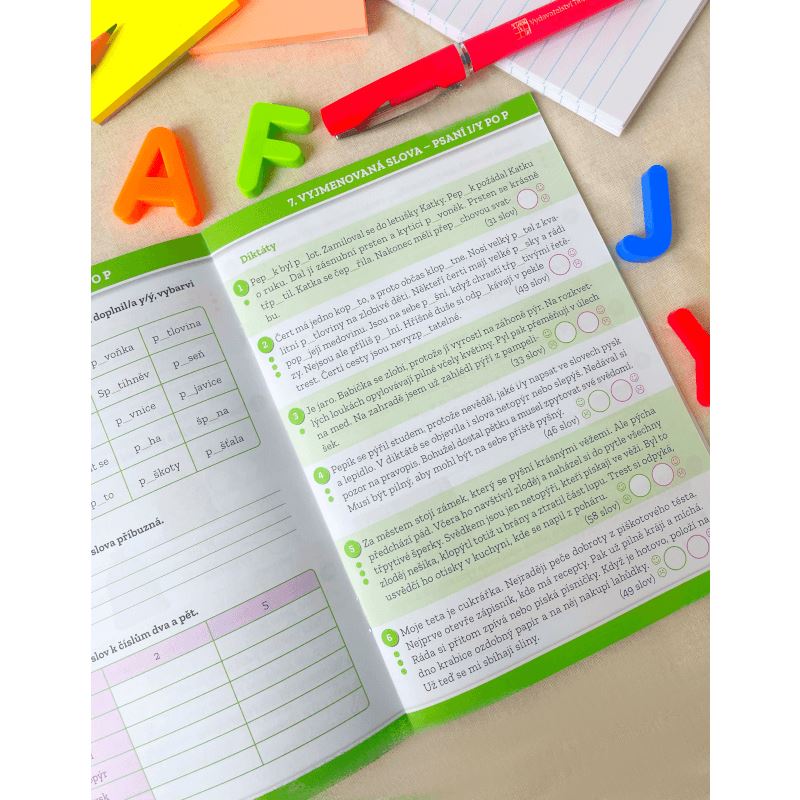 Vydavatelství
A
F
J
O P
doplnil/a y/ý, vybarvi
p_voňka
p_tlovina
Sp_tihněv
p_seň
p_vnice
p_javice
t se
p_ha
šp_na
p_to
p_škoty
p_šťala
slova příbuzná.
slov k číslům dva a pět.
2
5
pýr
sk
7. VYJMENOVANÁ SLOVA – PSANÍ I/Y PO P
Diktáty
1
Pep_k byl p_lot. Zamiloval se do letušky Katky. Pep_k požádal Katku
o ruku. Dal jí zásnubní prsten a kytici p_voněk. Prsten se krásně
třp_til. Katka se čep_řila. Nakonec měli přep_chovou svat-
bu.
(31 slov)
2
Čert má jedno kop_to, a proto občas klop_tne. Nosí velký p_tel z kva-
litní p_tloviny na zlobivé děti. Někteří čerti mají velké p_sky a rádi
pop_její medovinu. Jsou na sebe p_šní, když chrastí třp_tivými řetě-
zy. Nejsou ale příliš p_lní. Hříšné duše si odp_kávají v pekle
trest. Čertí cesty jsou nevyzp_tatelné.
(49 slov)
3
Je jaro. Babička se zlobí, protože jí vyrostl na záhoně pýr. Na rozkvet-
lých loukách opylovávají pilné včely květiny. Pyl pak přeměňují v úlech
na med. Na zahradě jsem už zahlédl pýří z pampeli-
šek.
(33 slov)
4
Pepík se pýřil studem, protože nevěděl, jaké i/y napsat ve slovech pysk
a lepidlo. V diktátě se objevila i slova netopýr nebo slepýš. Nedával si
pozor na pravopis. Bohužel dostal pětku a musel zpytovat své svědomí.
Musí být pilný, aby mohl být na sebe příště pyšný.
(46 slov)
5
Za městem stojí zámek, který se pyšní krásnými věžemi. Ale pýcha
předchází pád. Včera ho navštívil zloděj a naházel si do pytle všechny
třpytivé šperky. Svědkem jsou jen netopýři, kteří pískají ve věži. Byl to
zloděj nešika, klopýtl totiž u brány a ztratil část lupu. Trest si odpyká,
usvědčí ho otisky v kuchyni, kde se napil z poháru.
(58 slov)
6
Moje teta je cukrářka. Nejraději peče dobroty z piškotového těsta.
Nejprve otevře zápisník, kde má recepty. Pak už pilně krájí a míchá.
Ráda si přitom zpívá nebo píská písničky. Když je hotovo, položí na
dno krabice ozdobný papír a na něj nakupí lahůdky.
Už teď se mi sbíhají sliny.
(49 slov)